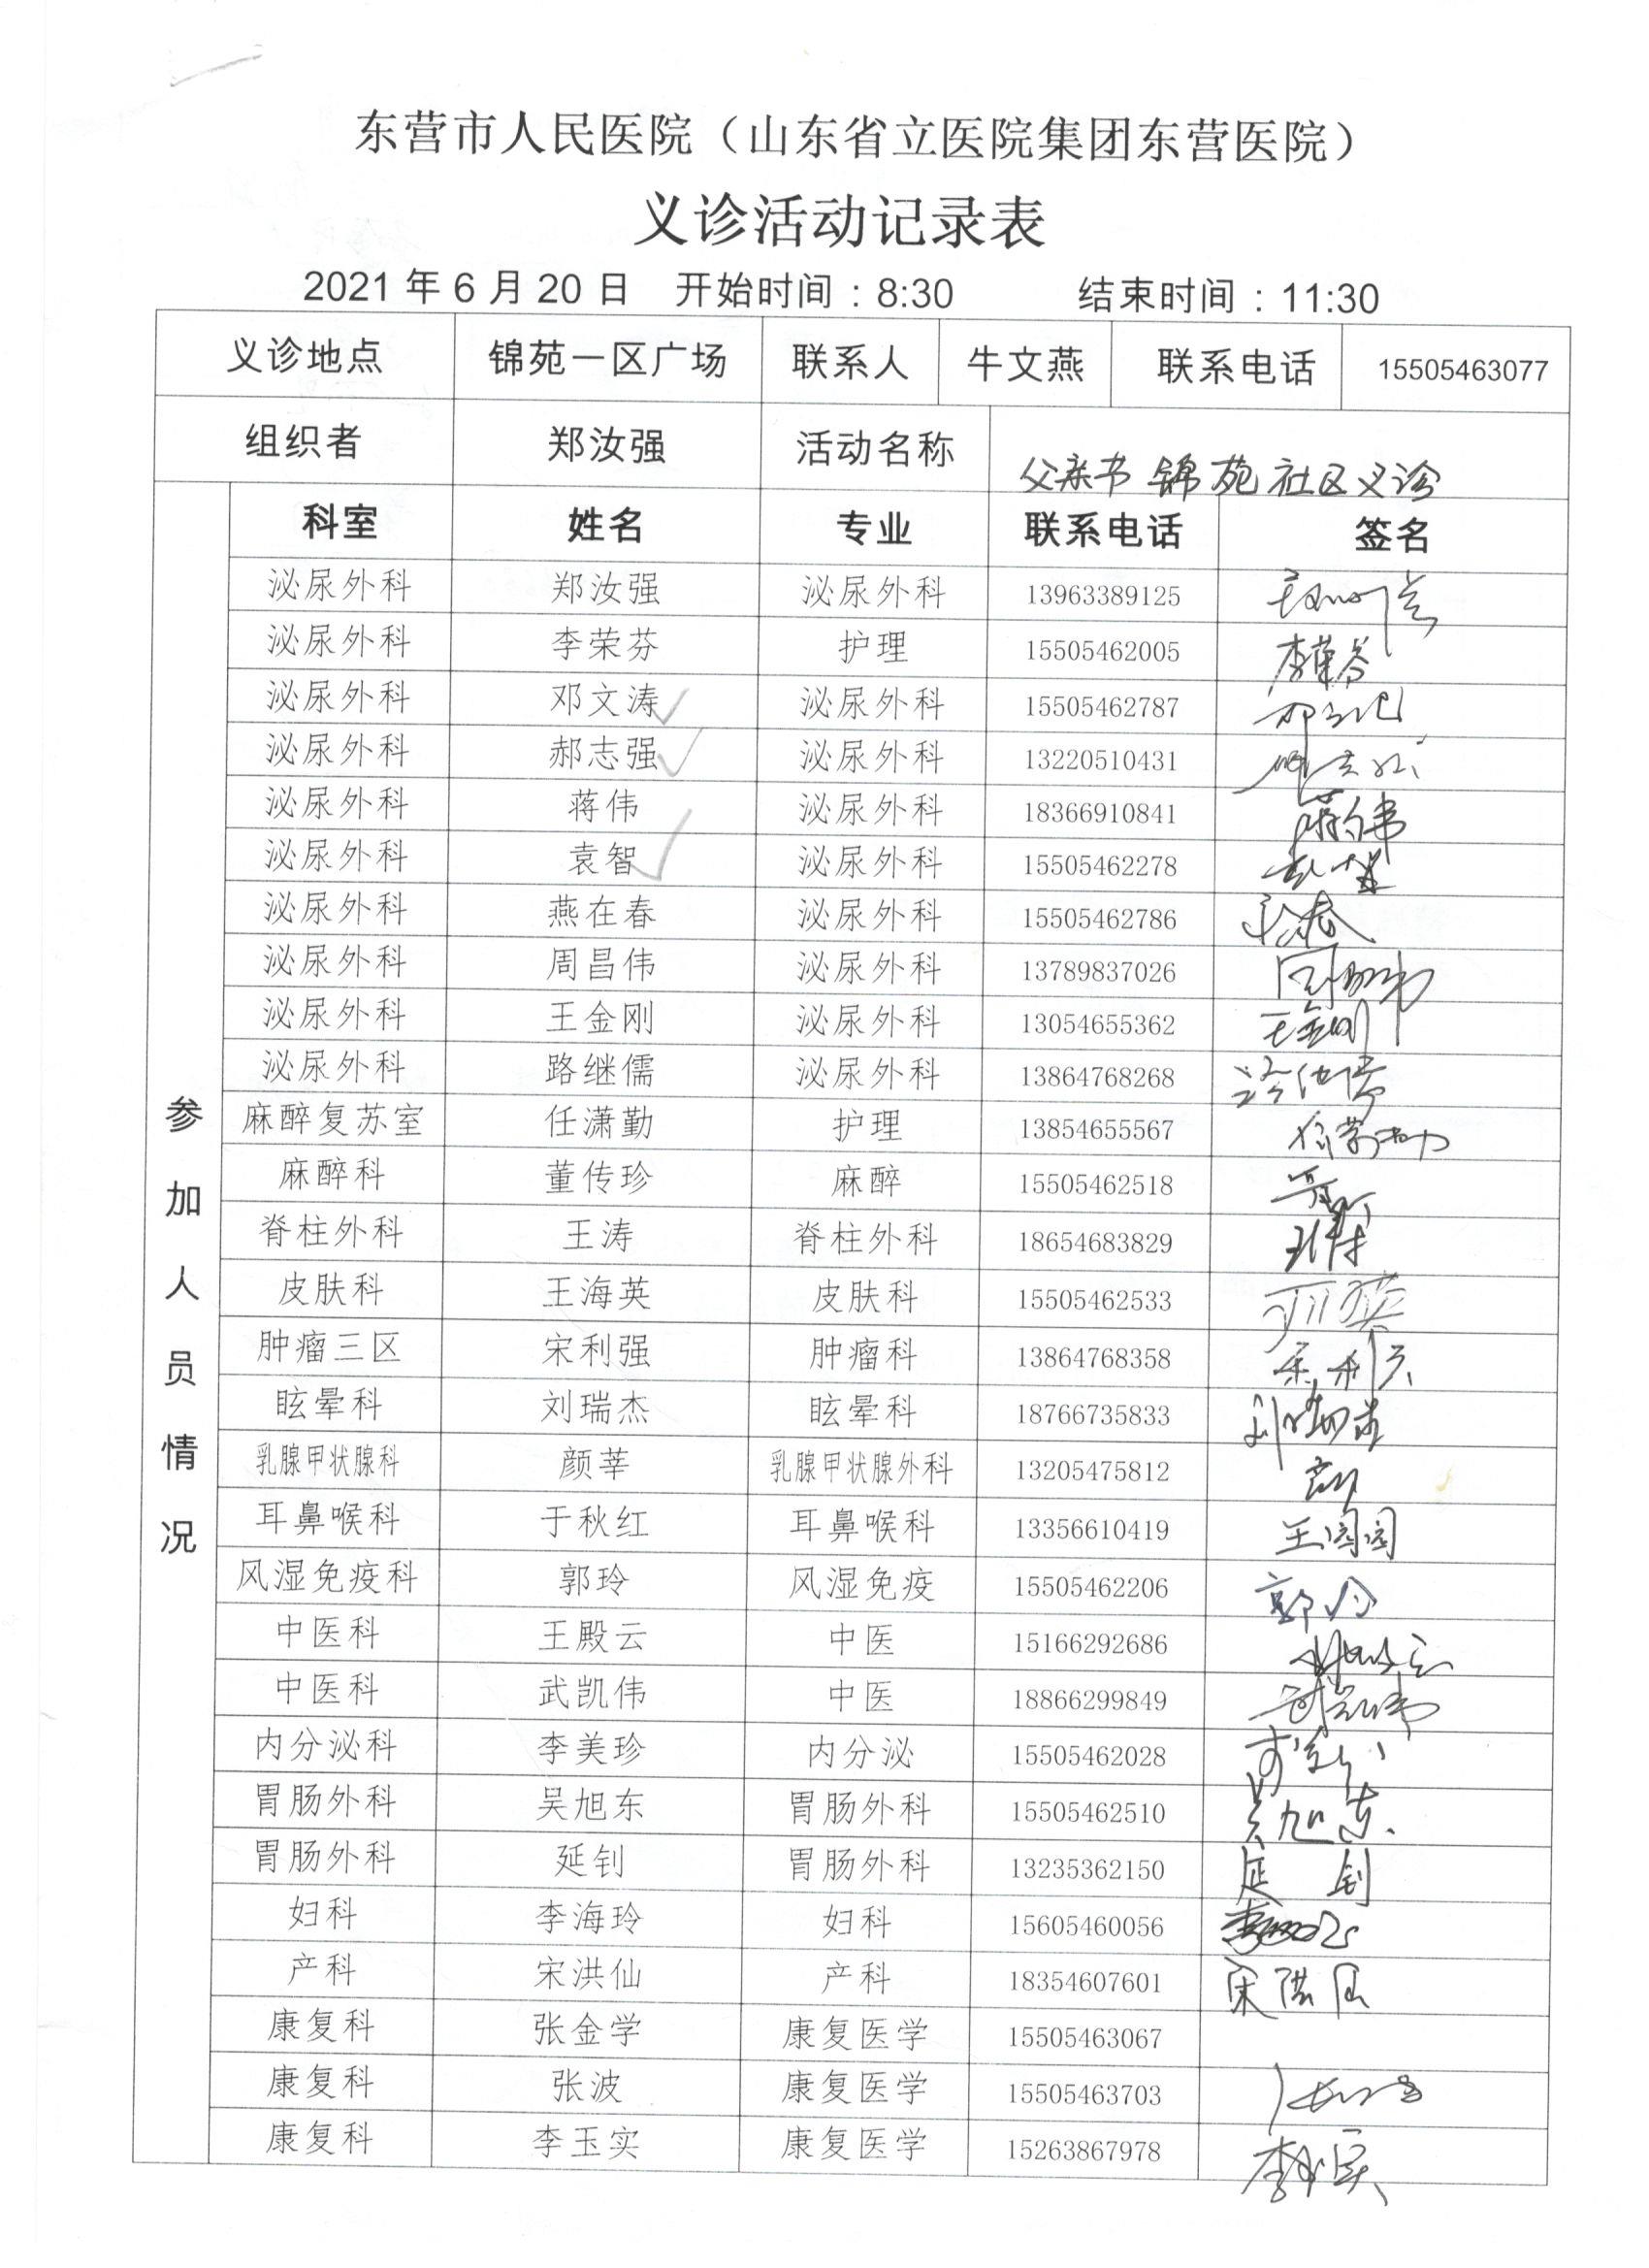 东营市人民医院（山东省立医院集团东营医院）
义诊活动记录表
2021 年 6 月 20 日 开始时间：8:30 结束时间：11:30
义诊地点 锦苑一区广场 联系人 牛文燕 联系电话 15505463077
组织者 郑汝强 活动名称 父亲节 锦苑社区义诊
参加人员情况
科室 姓名 专业 联系电话 签名
泌尿外科 郑汝强 泌尿外科 13963389125
泌尿外科 李荣芬 护理 15505462005 李荣芬
泌尿外科 邓文涛 泌尿外科 15505462787
泌尿外科 郝志强 泌尿外科 13220510431
泌尿外科 蒋伟 泌尿外科 18366910841 蒋伟
泌尿外科 袁智 泌尿外科 15505462278
泌尿外科 燕在春 泌尿外科 15505462786
泌尿外科 周昌伟 泌尿外科 13789837026 周昌伟
泌尿外科 王金刚 泌尿外科 13054655362 王金刚
泌尿外科 路继儒 泌尿外科 13864768268 路继儒
麻醉复苏室 任潇勤 护理 13854655567
麻醉科 董传珍 麻醉 15505462518
脊柱外科 王涛 脊柱外科 18654683829 王涛
皮肤科 王海英 皮肤科 15505462533
肿瘤三区 宋利强 肿瘤科 13864768358 宋利强
眩晕科 刘瑞杰 眩晕科 18766735833 刘瑞杰
乳腺甲状腺科 颜莘 乳腺甲状腺外科 13205475812
耳鼻喉科 于秋红 耳鼻喉科 13356610419 王阔阔
风湿免疫科 郭玲 风湿免疫 15505462206 郭玲
中医科 王殿云 中医 15166292686
中医科 武凯伟 中医 18866299849 武凯伟
内分泌科 李美珍 内分泌 15505462028
胃肠外科 吴旭东 胃肠外科 15505462510 吴旭东
胃肠外科 延钊 胃肠外科 13235362150 延钊
妇科 李海玲 妇科 15605460056 李海玲
产科 宋洪仙 产科 18354607601 宋洪仙
康复科 张金学 康复医学 15505463067
康复科 张波 康复医学 15505463703
康复科 李玉实 康复医学 15263867978 李玉实